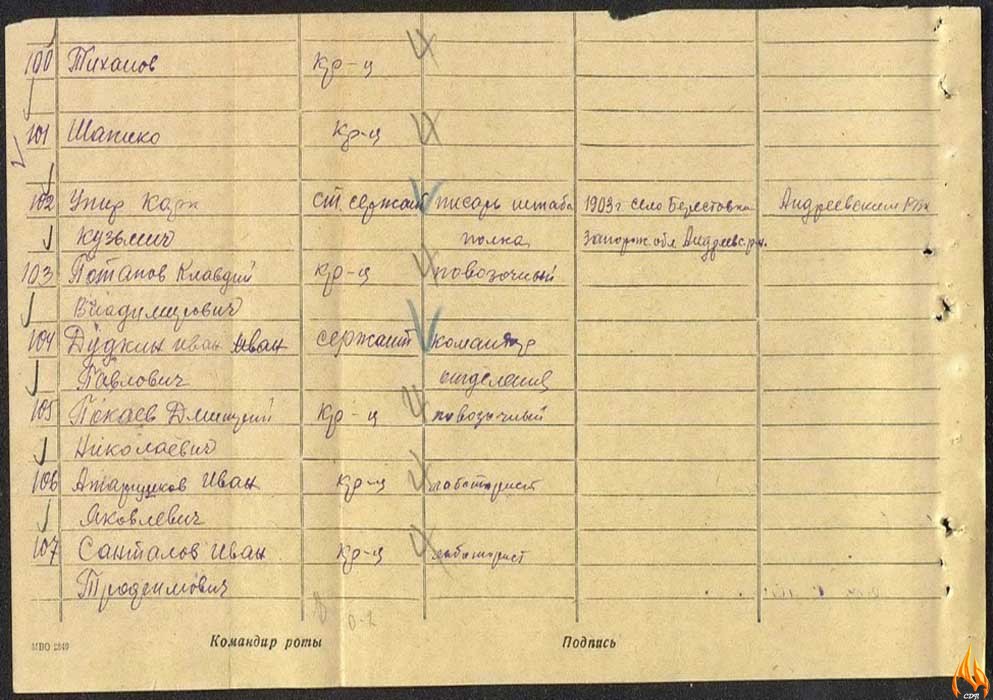 100 Тиханов Кр-ц
101 Шапико Кр-ц
102 Упир Карп ст. сержант писарь штаба 1903 г. село Берестовка Андреевским РВК
Кузьмич полка Запорож. обл. Андреевс. р-н.
103 Потапов Клавдий кр-ц повозочный
Владимирович
104 Дудкин Иван Иван сержант командир
Павлович отделения
105 Покаев Дмитрий Кр-ц повозочный
Николаевич
106 Иван кр-ц
Яковлевич
107 Санталов Иван кр-ц
Трофимович
0-2
МВО 2849 Командир роты Подпись
СДП